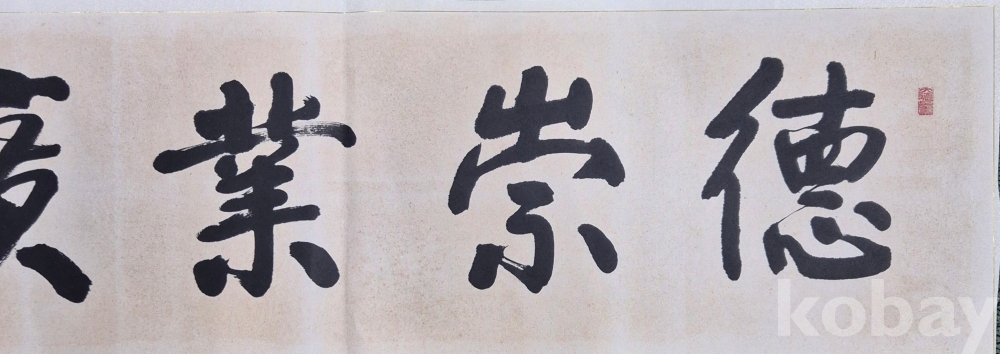 德崇業廣
kobay